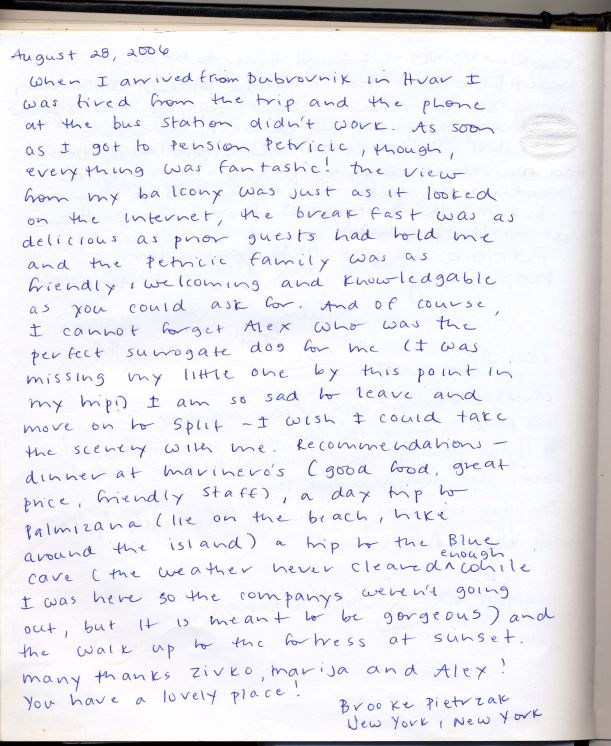 August 28, 2006
When I arrived from Dubrovnik in Hvar I
was tired from the trip and the phone
at the bus station didn't work. As soon
as I got to Pension Petricic, though,
everything was fantastic! The view
from my balcony was just as it looked
on the Internet, the breakfast was as
delicious as prior guests had told me
and the Petricic family was as
friendly, welcoming and knowledgable
as you could ask for. And of course,
I cannot forget Alex who was the
perfect surrogate dog for me (I was
missing my little one by this point in
my trip!) I am so sad to leave and
move on to Split - I wish I could take
the scenery with me. Recommendations -
dinner at Marinero's (good food, great
price, friendly staff), a day trip to
Palmizana (lie on the beach, hike
around the island) a trip to the Blue
cave (the weather never cleared enough while
I was here so the companys weren't going
out, but it is meant to be gorgeous) and
the walk up to the fortress at sunset.
Many thanks Zivko, Marija and Alex!
You have a lovely place!
Brooke Pietrzak
New York, New York